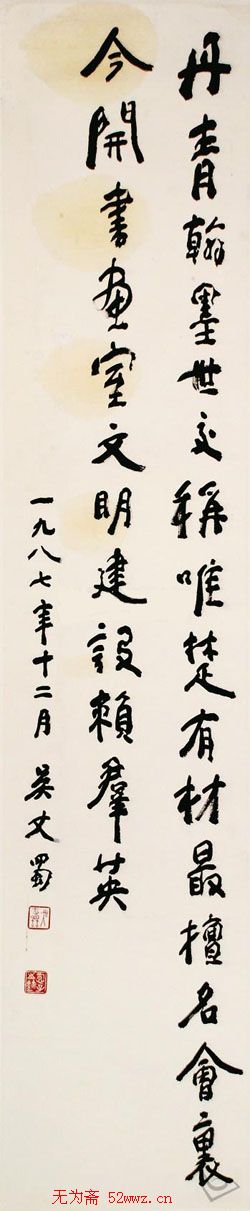 丹青翰墨世交稱唯楚有材最擅名會裏
今開書畫室文明建設賴羣英
一九八七年十二月 吳丈蜀
无为斋 52wwz.cn